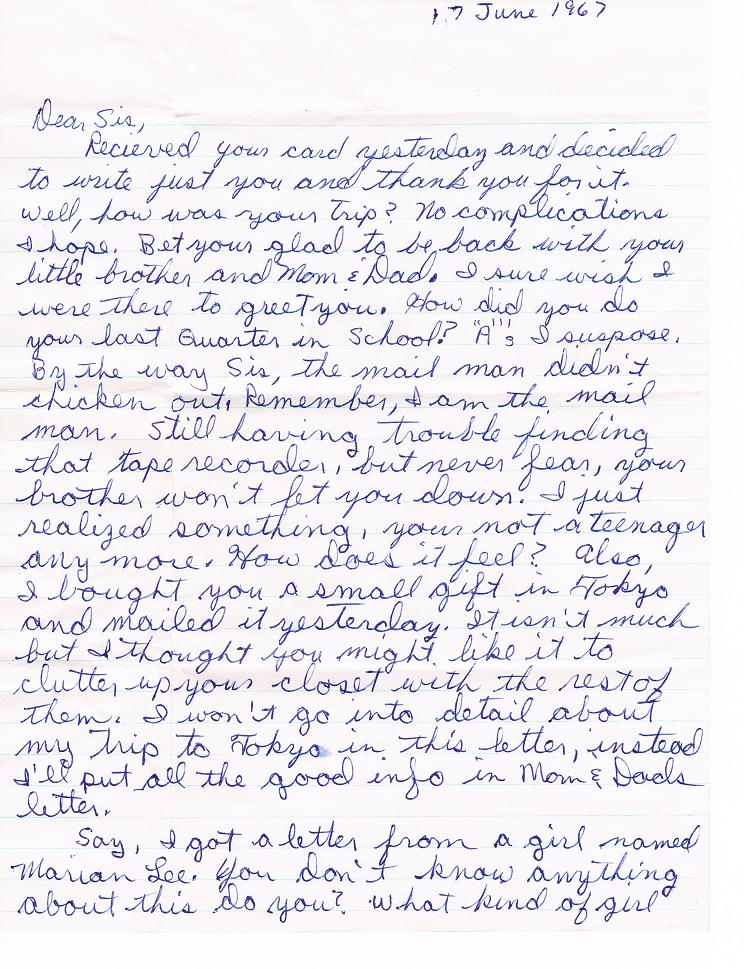 17 June 1967
Dear Sis,
Recieved your card yesterday and decided
to write just you and thank you for it.
Well, how was your Trip? No complications
I hope. Bet your glad to be back with your
little brother and Mom & Dad. I sure wish I
were there to greet you. How did you do
your last Quarter in School? "A"'s I suspose.
By the way Sis, the mail man didn't
chicken out. Remember, I am the mail
man. Still having trouble finding
that tape recorder, but never fear, your
brother won't let you down. I just
realized something, your not a teenager
any more. How does it feel? Also,
I bought you a small gift in Tokyo
and mailed it yesterday. It isn't much
but I thought you might like it to
clutter up your closet with the rest of
them. I won't go into detail about
my Trip to Tokyo in this letter, instead
I'll put all the good info in Mom & Dads
letter.
Say, I got a letter from a girl named
Marian Lee. You don't know anything
about this do you? What kind of girl